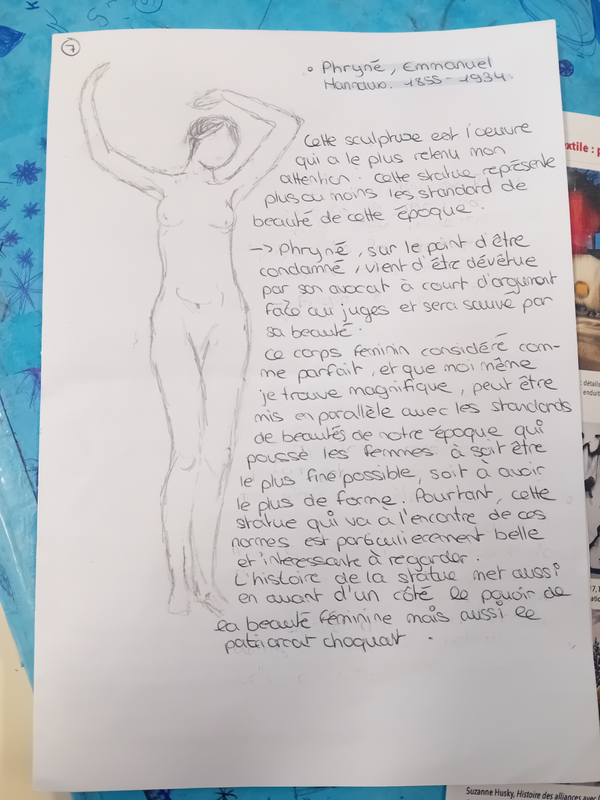 7
• Phryné, Emmanuel
Hannaux. 1855 - 1934
Cette sculpture est l'oeuvre
qui a le plus retenu mon
attention. Cette statue représente
plus ou moins les standard de
beauté de cette époque.
-> Phryné, sur le point d'être
condamné, vient d'être dévêtue
par son avocat à court d'argument
face aux juges et sera sauvé par
sa beauté.
Ce corps féminin considéré com-
me parfait, et que moi même
je trouve magnifique, peut être
mis en parallèle avec les standards
de beautés de notre époque qui
poussé les femmes à soit être
le plus fine possible, soit à avoir
le plus de forme. Pourtant, cette
statue qui va à l'encontre de ces
normes est particulierement belle
et intéressante à regarder.
L'histoire de la statue met aussi
en avant d'un côté le pouvoir de
la beauté féminine mais aussi le
patriarcat choquant.
extile : p
détails
enduit
Suzanne Husky, Histoire des alliances avec